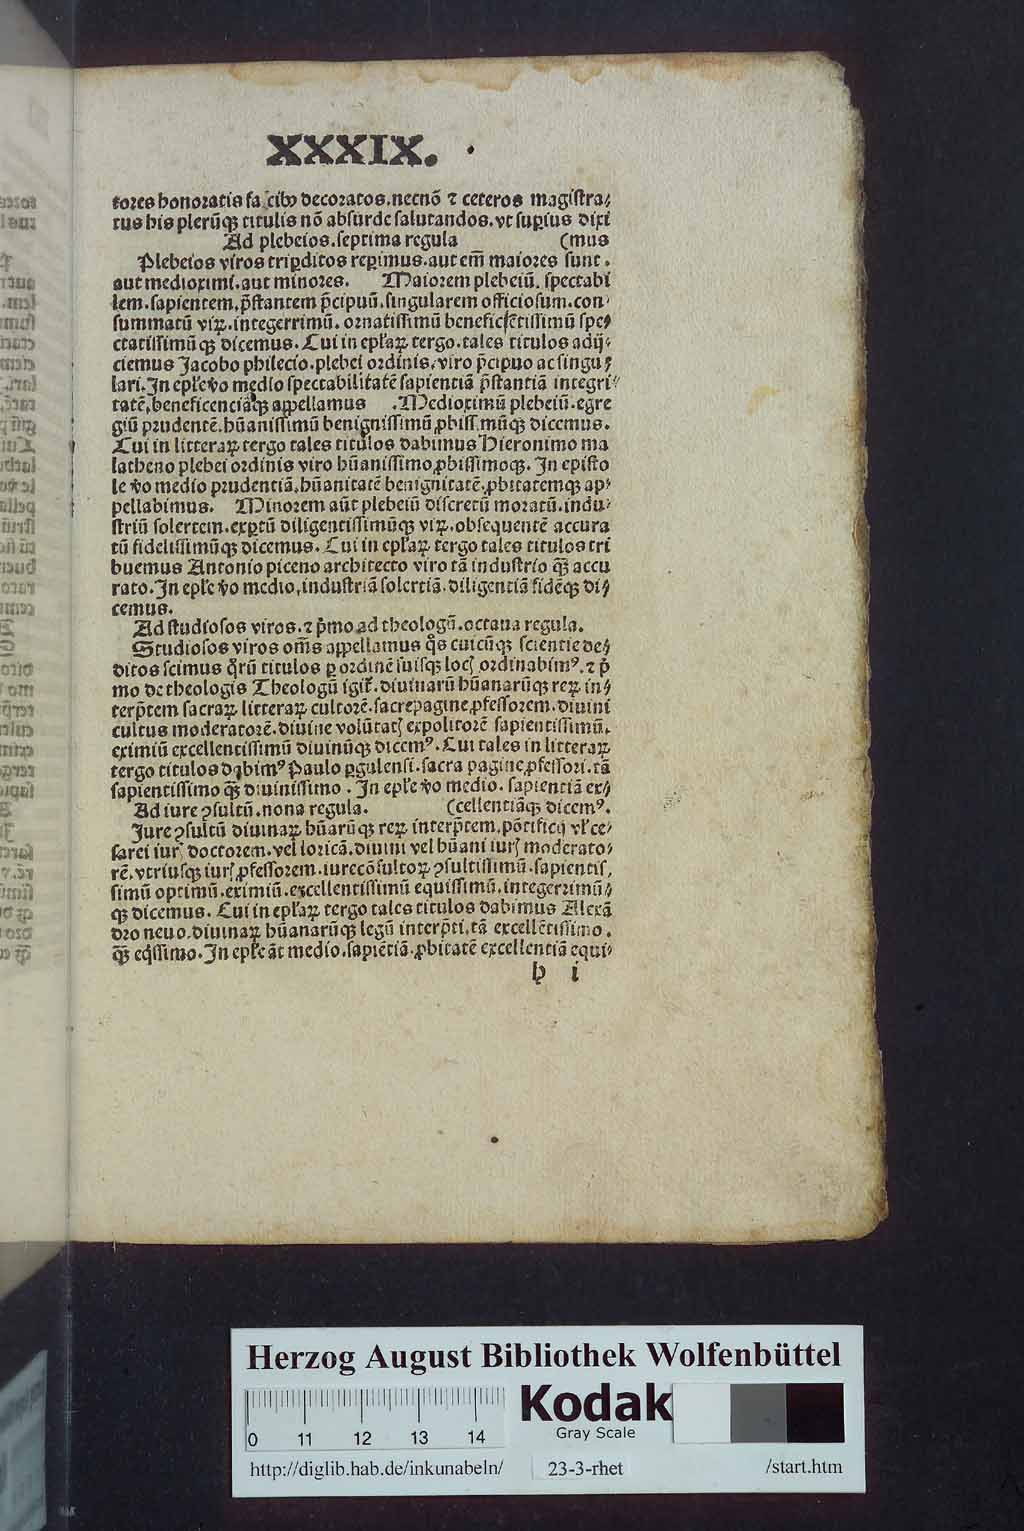 XXXIX.
tores honoratis fascibꝰ decoratos.necnō ⁊ ceteros magistra⸗
tus his plerūqꝫ titulis nō absurde salutandos.vt superius dixi
Ad plebeios.septima regula (mus
Plebeios viros tripꝑditos reperimus.aut em̄ maiores sunt.
aut medioximi.aut minores. Maiorem plebeiū.spectabi
lem.sapientem.p̄stantem p̄cipuū.singularem officiosum.con⸗
summatū viꝝ.integerrimū.ornatissimū beneficētissimū spe⸗
ctatissimūqꝫ dicemus.Cui in epl'aꝝ tergo.tales titulos adij⸗
ciemus Jacobo philecio.plebei ordinis.viro p̄cipuo ac singu⸗
lari.In epl'e v̓o medio spectabilitatē sapientiā p̄stantiā integri⸗
tatē.beneficenciāqꝫ appellamus .Medioximū plebeiū.egre
giū prudentē.hūanissimū benignissimū ꝓbissimūqꝫ dicemus.
Cui in litteraꝝ tergo tales titulos dabimus Hieronimo ma
latheno plebei ordinis viro hūanissimo ꝓbissimoqꝫ. In episto
le v̓o medio prudentiā.hūanitatē benignitatē.ꝓbitatemqꝫ ap⸗
pellabimus. Minorem aūt plebeiū discretū moratū.indu⸗
striū solertem.expertū diligentissimūqꝫ viꝝ.obsequentē accura
tū fidelissimūqꝫ dicemus.Cui in epl'aꝝ tergo tales titulos tri
buemus Antonio piceno architecto viro tā industrio qꝫ̄ accu
rato.In epl'e v̓o medio.industriā solertiā.diligentiā fidēqꝫ di⸗
cemus.
Ad studiosos viros.⁊ p̄mo ad theologū.octaua regula.
Studiosos viros om̄s appellamus qͦs cuicūqꝫ scientie de⸗
ditos scimus qͦrū titulos ꝑ ordinē suisqꝫ locꝭ ordinabimꝰ.⁊ p̄
mo de theologis Theologū igit᷑.diuinarū hūanarūqꝫ reꝝ in⸗
terp̄tem sacraꝝ litteraꝝ cultorē.sacre pagine ꝓfessorem.diuini
cultus moderatorē.diuine volūtatꝭ expolitorē sapientissimū.
eximiū excellentissimū diuinūqꝫ dicemꝰ.Cui tales in litteraꝝ
tergo titulos dabimꝰ Paulo ꝑgulensi.sacra pagine ꝓfessori.tā
sapientissimo qꝫ̄ diuinissimo.In epl'e v̓o medio.sapientiā ex⸗
Ad iure ꝯsultū.nona regula. (cellentiāqꝫ dicemꝰ.
Jure ꝯsultū diuinaꝝ hūarūqꝫ reꝝ interp̄tem.pōtificij vl' ce⸗
sarei iurꝭ doctorem.vel loricā.diuini vel hūani iurꝭ moderato⸗
rē.vtriusqꝫ iurꝭ ꝓfessorem.iurecōsultoꝝ ꝯsultissimū.sapientis⸗
simū optimū.eximiū.excellentissimū equissimū.integerrimū⸗
qꝫ dicemus.Cui in epl'aꝝ tergo tales titulos dabimus Alexā
dro neuo.diuinaꝝ hūanarūqꝫ legū interp̄ti.tā excellētissimo.
qꝫ̄ eq̄ssimo.In epl'e āt medio.sapiētiā.ꝓbitatē excellentiā equi⸗
h i
Herzog August Bibliothek Wolfenbüttel
Kodak
Gray Scale
0 11 12 13 14
http://diglib.hab.de/inkunabeln/ 23-3-rhet /start.htm